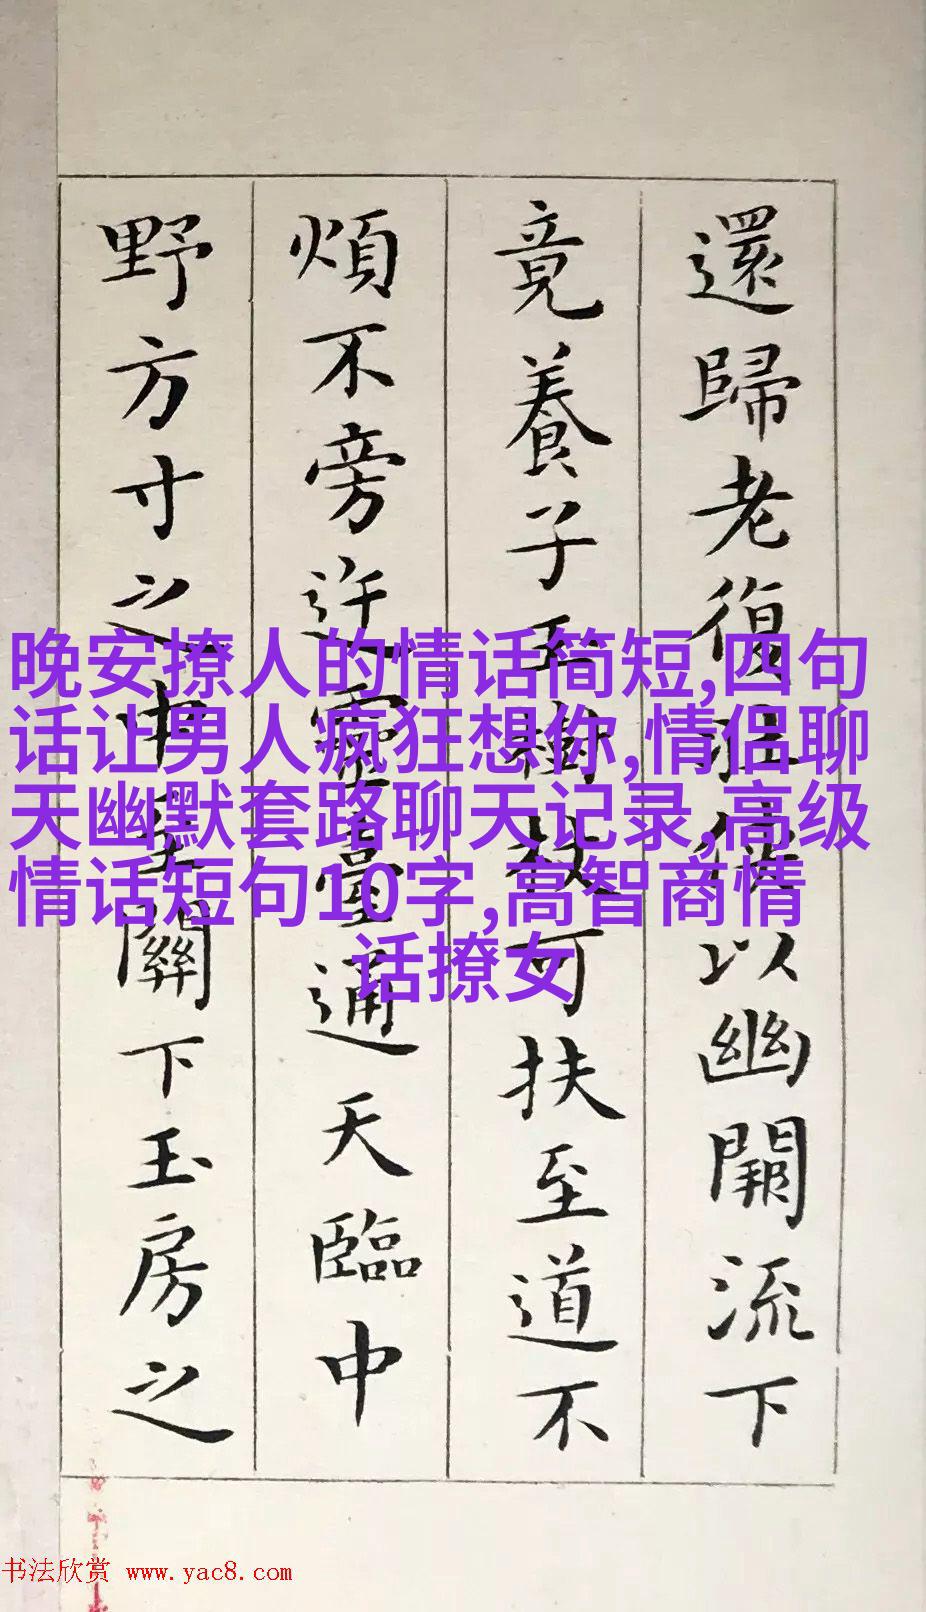 還歸老復壯俠以幽闕流下
竟養子玉樹杖可扶至道不
煩不旁迕靈臺通天臨中
野方寸之中至關下玉房之
晚安撩人的情话简短,四句
话让男人疯狂想你,情侣聊
天幽默套路聊天记录,高级
情话短句10字,高智商情
话撩女
书法欣赏 www.yac8.com